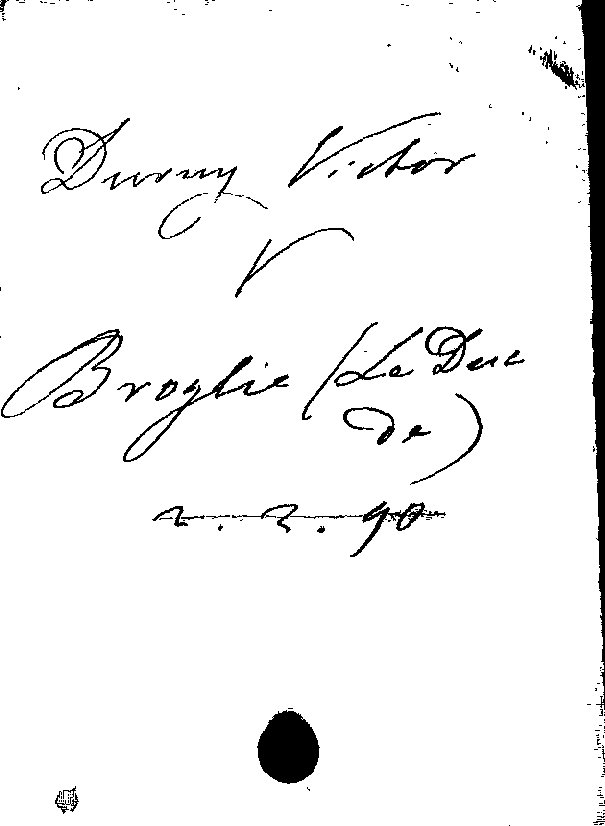 Duruy Victor
V
Broglie (Le Duc
de)
2. 2. 90